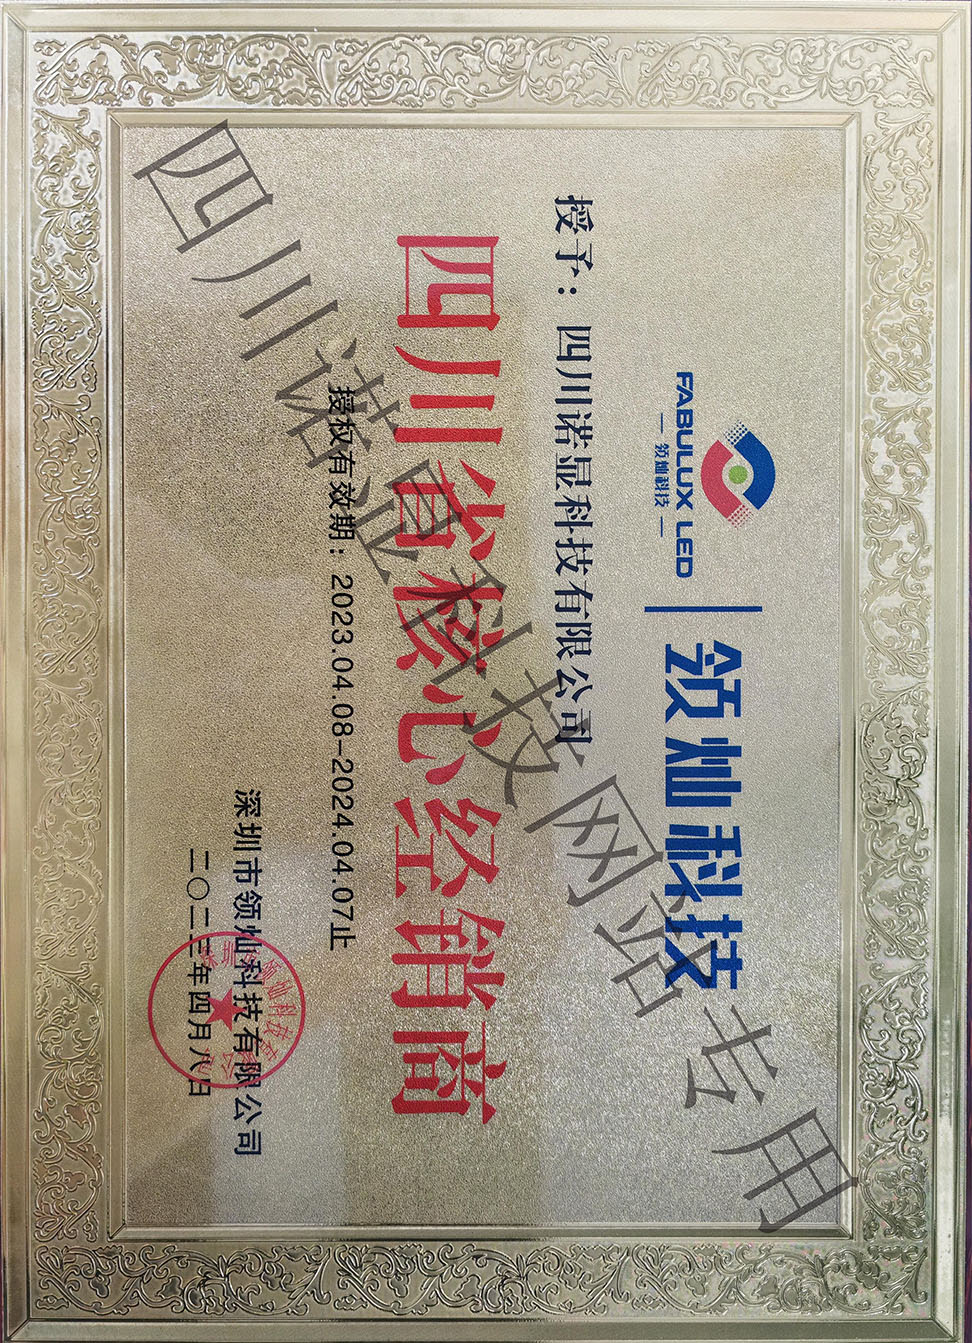 FABULUX LED
领灿科技
领灿科技
授予：四川诺显科技有限公司
四川省核心经销商
授权有效期：2023.04.08-2024.04.07止
深圳市领灿科技有限公司
二〇二三年四月八日
四川诺显科技网站专用